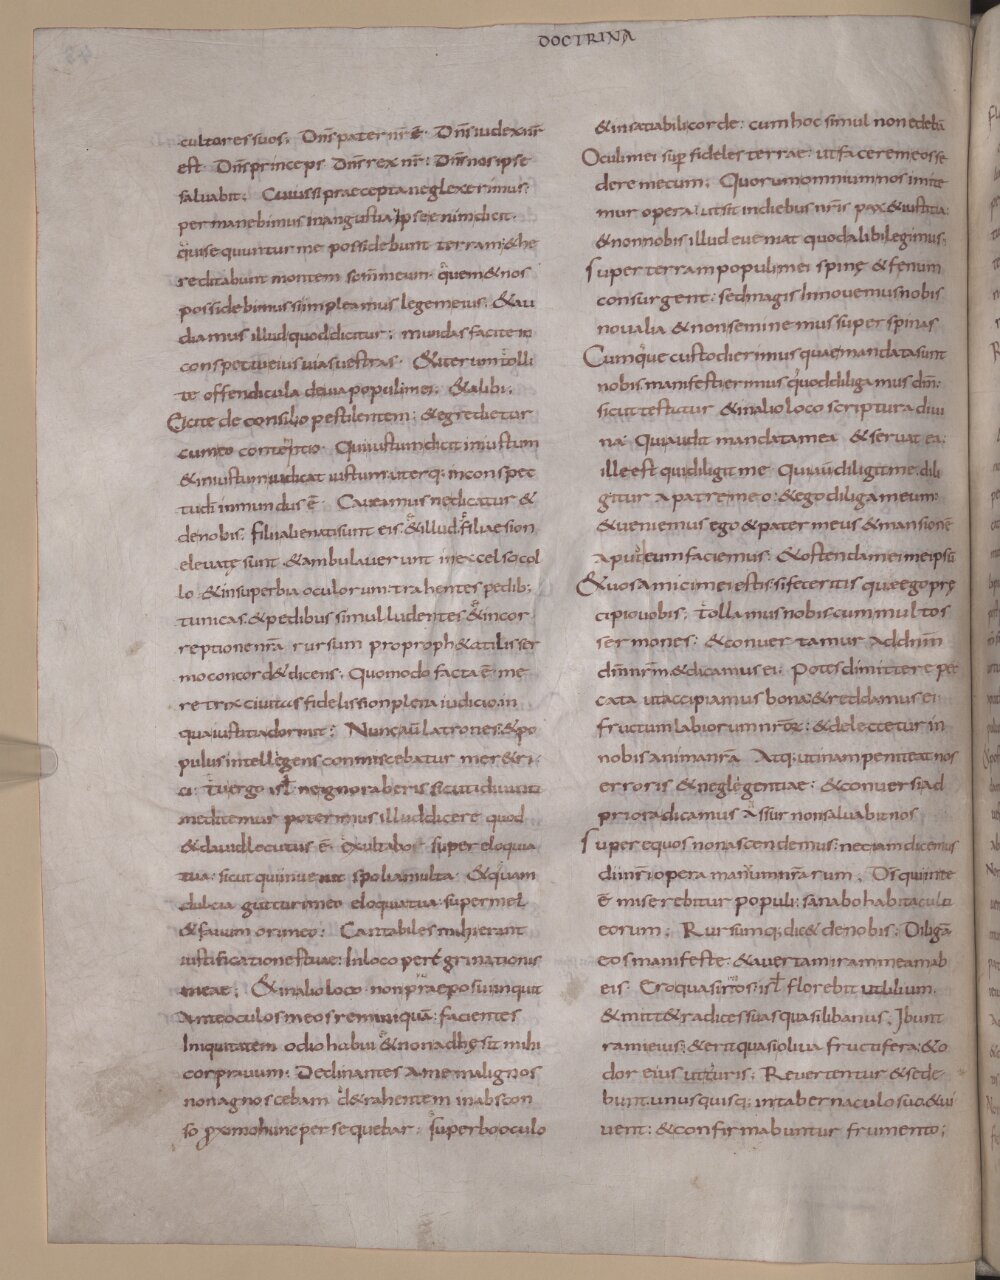 DOCTRINA
cultores suos. Dn̄s pater nr̄ ē. Dn̄s iudex nr̄
est. Dn̄s princeps. Dn̄s rex nr̄: Dn̄s nos ipse
saluabit. Cuius si praecepta neglexerimus.
permanebimus in angustia. Ipse enim dicit.
qui sequuntur me possidebunt terram. & he
reditabunt montem sc̄m meum. quem & nos
possidebimus si impleamus legem eius. & au
diamus illud quod dicitur; mundas facite in
conspectu eius uias uestras. & iterum tolli
te offendicula de uia populi mei. & alibi.
Eicite de consilio pestilentem: & egredietur
cum eo contentio. Qui iustum dicit iniustum
& iniustum iudicat iustum uterq; in conspec
tu dī inmundus ē. Caueamus ne dicatur &
de nobis. filii alienati sunt eis. & illud. filiae sion
eleuatę sunt. & ambulauerunt in excelso col
lo. & in superbia oculorum: trahentes pedib;
tunicas. & pedibus simul ludentes. & in cor
reptione nr̄a rursum pro proph&ae tilis ser
mo concord& dicens. Quomodo facta ē me
retrix ciuitas fidelis sion plena iudicio. in
qua iustitia dormit: Nunc aū latrones. & po
pulus intellegens conmiscebatur mer&ri
ci. Tu ergo isl̄ ne ignoraberis sicut
meditemur poterimus illud dicere quod
& dauid locutus ē. exultabo super eloquia
tua. sicut qui inuenit spolia multa. & quam
dulcia gutturi meo eloquia tua. super mel
& fauum ori meo: Cantabiles mihi erant
iustificationes tuae: In loco peregrinationis
meae; & in alio loco. non praeposui umquit
Ante oculos meos rem iniquā: facientes
Iniquitatem odio habui. & non adhęsit mihi
cor prauum. Declinantes a me malignos
non agnoscebam. d&rahentem in abscon
so proximo hunc persequebar. superbo oculo
& insatiabili corde: cum hoc simul non edebā
Oculi mei sup̄ fideles terrae: ut facerem eos se
dere mecum. Quorum omnium nos imite
mur opera. ut sit in diebus nr̄is pax & iustitia:
& non nobis illud eueniat quod alibi legimus.
super terram populi mei spinę & fenum
consurgent: sed magis Innouemus nobis
noualia & non seminemus super spinas
Cumque custodierimus quae mandata sunt
nobis. manifesti erimus quod diligamus dm̄:
sicut testatur & in alio loco scriptura diui
na. Qui audit mandata mea & seruat ea:
ille est qui diligit me. Qui aū diligit me. dili
gitur a patre meo: & ego diligam eum
& ueniemus ego & pater meus & mansionē
aput eum faciemus. & ostendam ei me ipsū
& uos amici mei estis. si feceritis quae ego prę
cipio uobis. tollamus nobiscum multos
sermones. & conuertamur ad dnm̄
dm̄ nr̄m & dicamus ei. Potes dimittere pec
cata ut accipiamus bona: & reddamus ei
fructum labiorum nr̄orum: & delectetur in
nobis anima nr̄a Atq; utinam peniteat nos
erroris & neglegentiae: & conuersi ad
priora dicamus Assur non saluabit nos
super equos non ascendemus: nec iam dicemus
dii nr̄i opera manuum nr̄arum. Ds̄ qui in te
ē miserebitur populi: sanabo habitaculi
eorum. Rursumq; dic& de nobis. Diligā
eos manifeste. & auertam iram meam ab
eis. Ero quasi ros. isl̄ florebit ut lilium.
& mitt& radices suas quasi libanus. Ibunt
rami eius: & erit quasi oliua fructifera: & o
dor eius ut turis. Reuertentur & sede
bunt. unusquisq; in tabernaculo suo. & ui
uent: & confirmabuntur frumento;